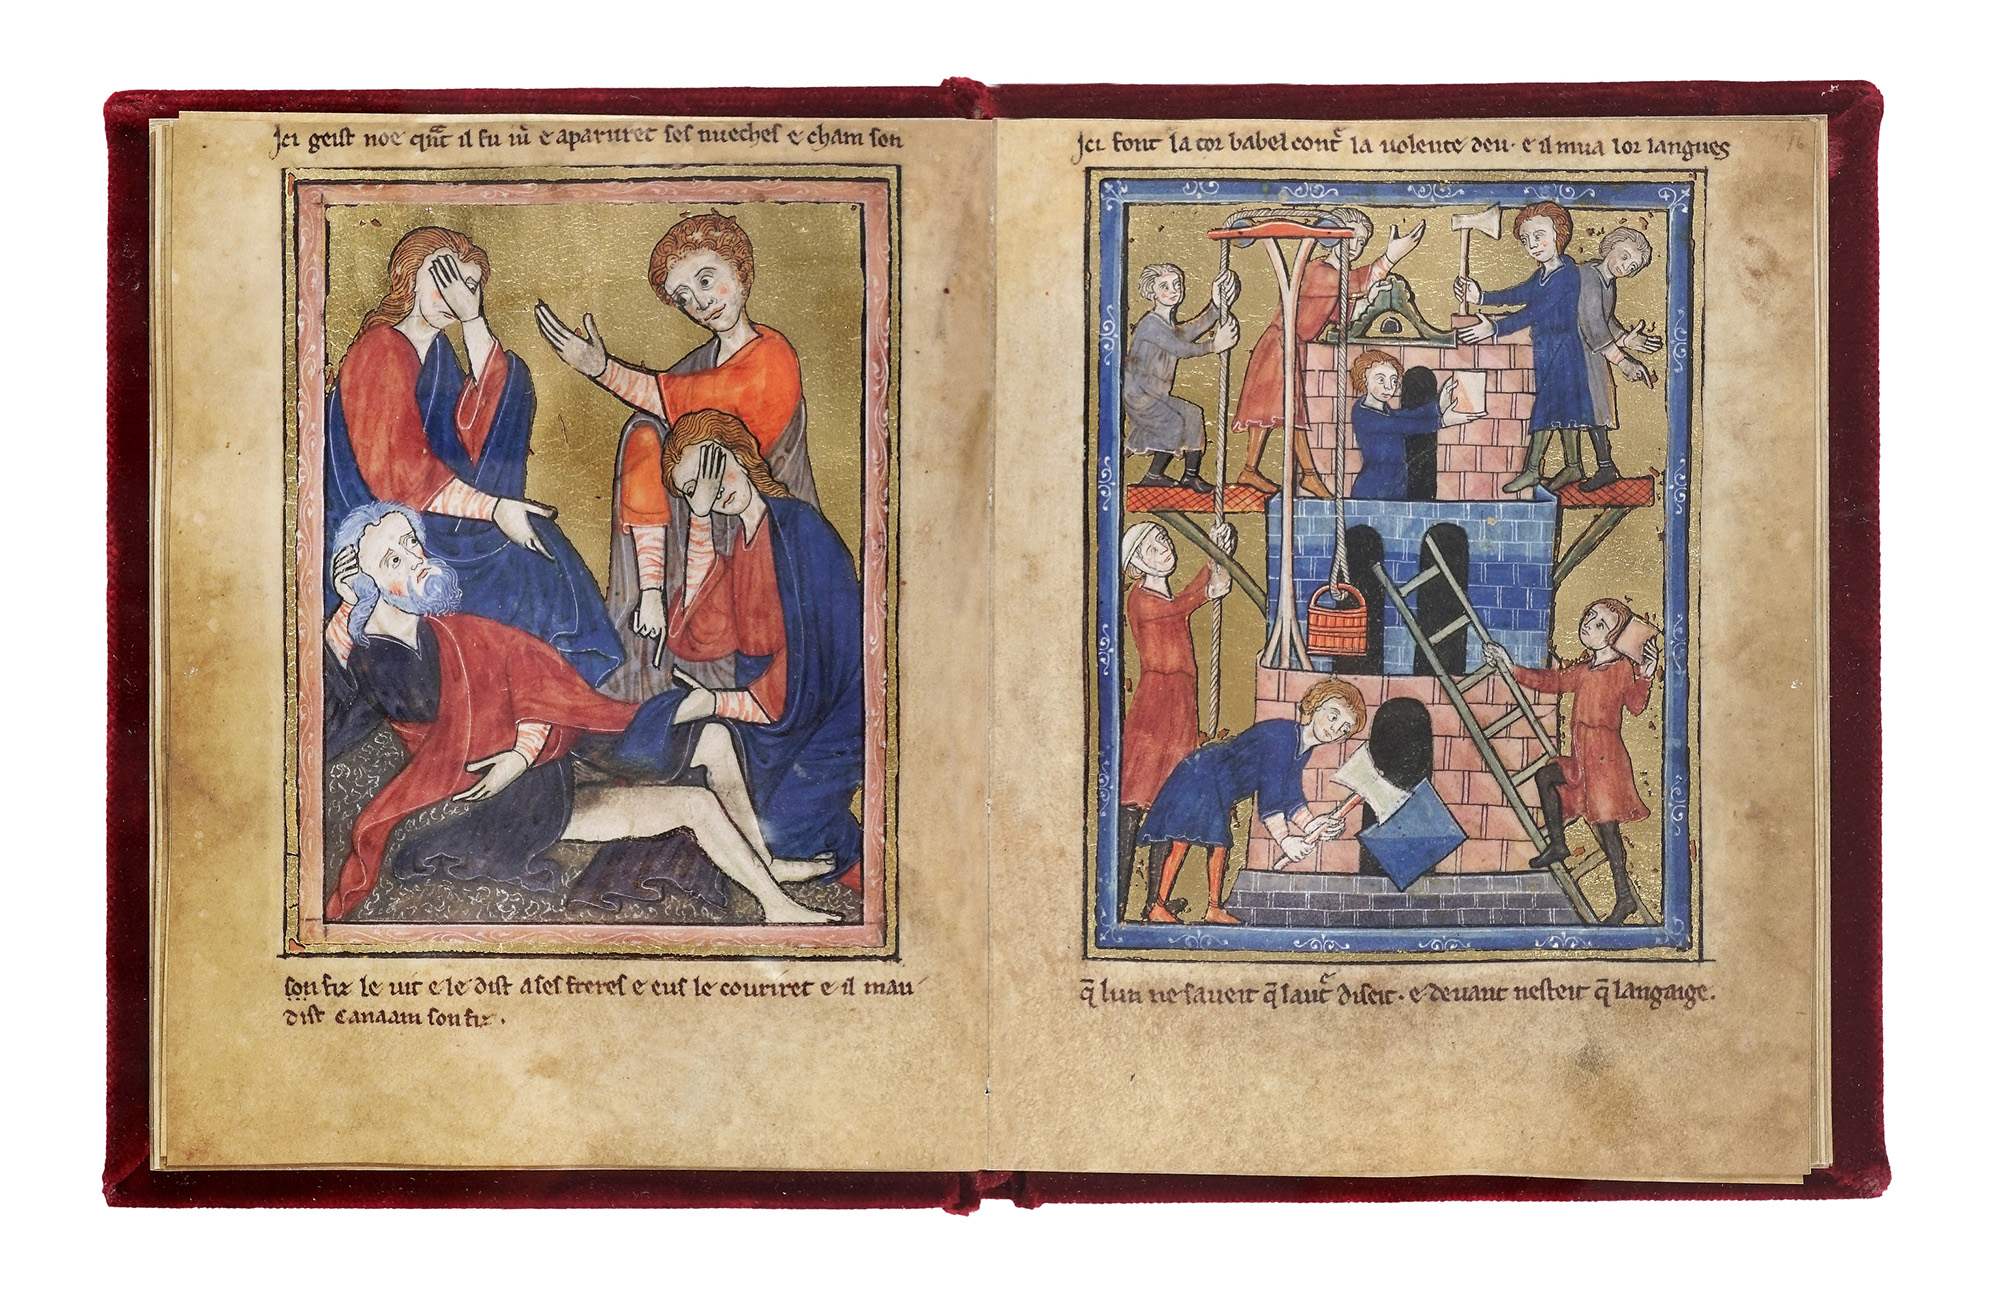 Ici geist noe qñt il fu iũ e aparuret ses nueches e cham son
son fiz le vit e le dist a ses freres e eus le couriret e il mau
dist Canaam son fiz.
Ici font la tor babel contr̃ la volente deu. e il mua lor langues
q̃ lun ne saveit q̃ lautr̃ diseit. e devant nesteit q̃ langaige.